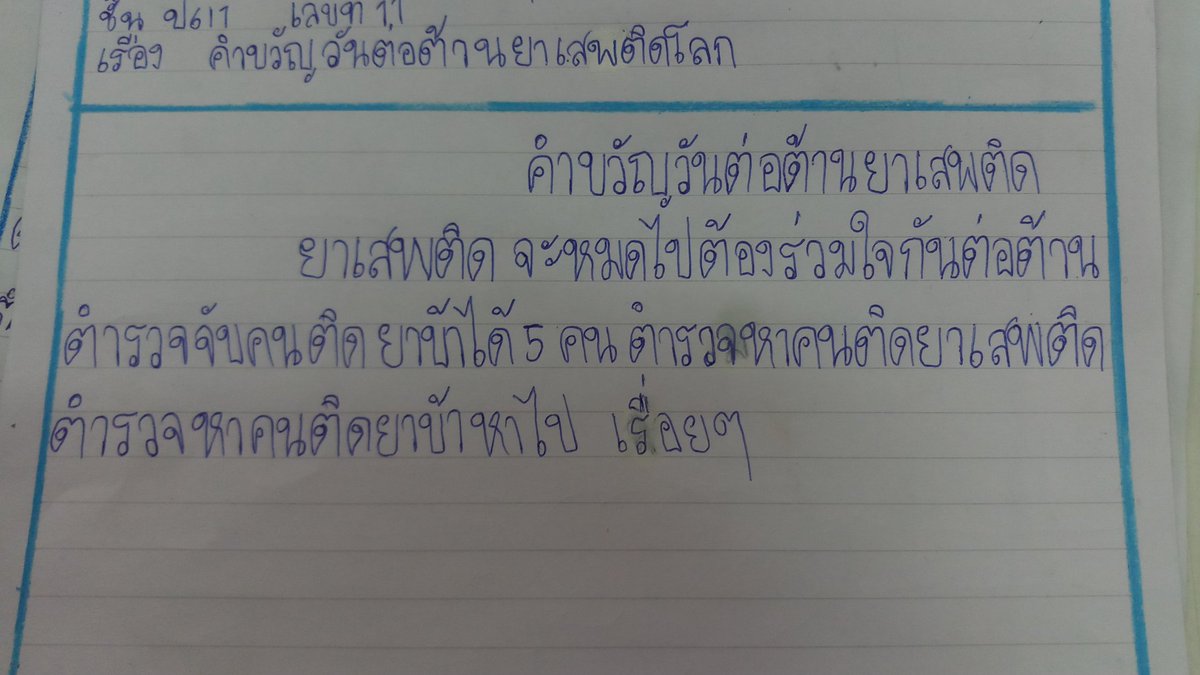 ชั้น ป6/1 เลขที่ 11
เรื่อง คำขวัญวันต่อต้านยาเสพติดโลก
คำขวัญวันต่อต้านยาเสพติด
ยาเสพติด จะหมดไปต้องร่วมใจกันต่อต้าน
ตำรวจจับคนติดยาบ้าได้ 5 คน ตำรวจหาคนติดยาเสพติด
ตำรวจหาคนติดยาบ้าหาไป เรื่อยๆ